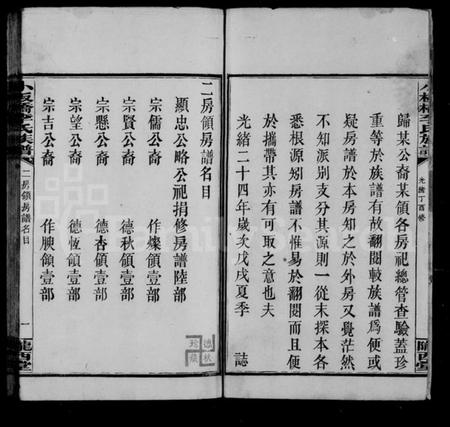 小板橋李氏族譜
光緒丁酉修
隴西堂
歸某公裔某領各房祀總管查驗蓋珍
重等於族譜故有翻閱較族譜為便或
疑房譜於本房知之於外房又覺茫然
不知派別支分其源則一從末探本各
悉根源矧房譜不惟易於翻閱而且便
於攜帶其亦有可取之意也夫
光緒二十四年歲次戊戌夏季 誌
二房領房譜名目
顯忠公略公祀捐修房譜陸部
宗儒公裔 作燦領壹部
宗賢公裔 德秋領壹部
宗懸公裔 德杏領壹部
宗望公裔 德恆領壹部
宗吉公裔 作腴領壹部
德秋
珍藏
小板橋李氏族譜
二房領房譜名目
一
隴西堂